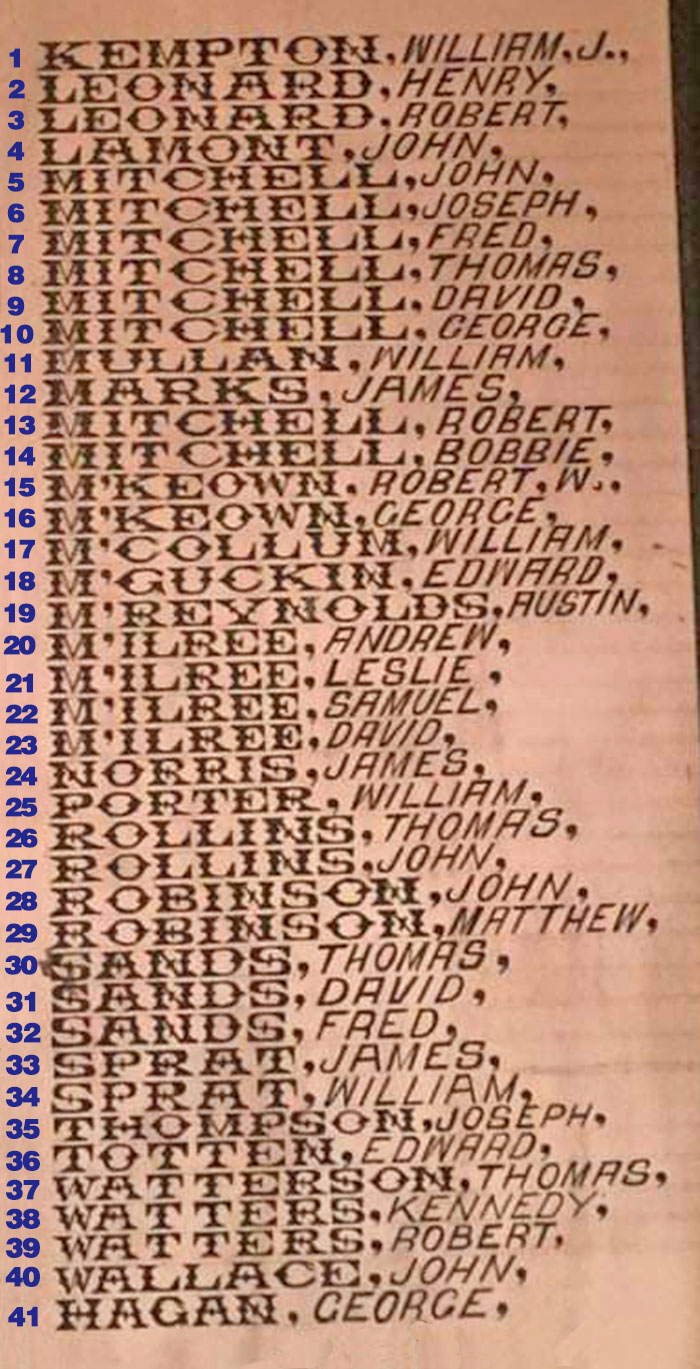 1 KEMPTON, WILLIAM, J.,
2 LEONARD, HENRY,
3 LEONARD, ROBERT,
4 LAMONT, JOHN,
5 MITCHELL, JOHN,
6 MITCHELL, JOSEPH,
7 MITCHELL, FRED,
8 MITCHELL, THOMAS,
9 MITCHELL, DAVID,
10 MITCHELL, GEORGE,
11 MULLAN, WILLIAM,
12 MARKS, JAMES,
13 MITCHELL, ROBERT,
14 MITCHELL, BOBBIE,
15 M'KEOWN, ROBERT, W.,
16 M'KEOWN, GEORGE,
17 M'COLLUM, WILLIAM,
18 M'GUCKIN, EDWARD,
19 M'REYNOLDS, AUSTIN,
20 M'ILREE, ANDREW,
21 M'ILREE, LESLIE,
22 M'ILREE, SAMUEL,
23 M'ILREE, DAVID,
24 NORRIS, JAMES,
25 PORTER, WILLIAM,
26 ROLLINS, THOMAS,
27 ROLLINS, JOHN,
28 ROBINSON, JOHN,
29 ROBINSON, MATTHEW,
30 SANDS, THOMAS,
31 SANDS, DAVID,
32 SANDS, FRED,
33 SPRAT, JAMES,
34 SPRAT, WILLIAM,
35 THOMPSON, JOSEPH,
36 TOTTEN, EDWARD,
37 WATTERSON, THOMAS,
38 WATTERS, KENNEDY,
39 WATTERS, ROBERT,
40 WALLACE, JOHN,
41 HAGAN, GEORGE,